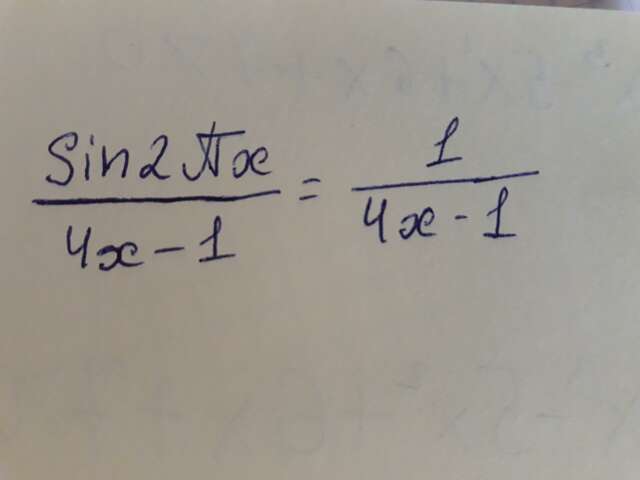 sin2πx / 4x-1 = 1 / 4x-1